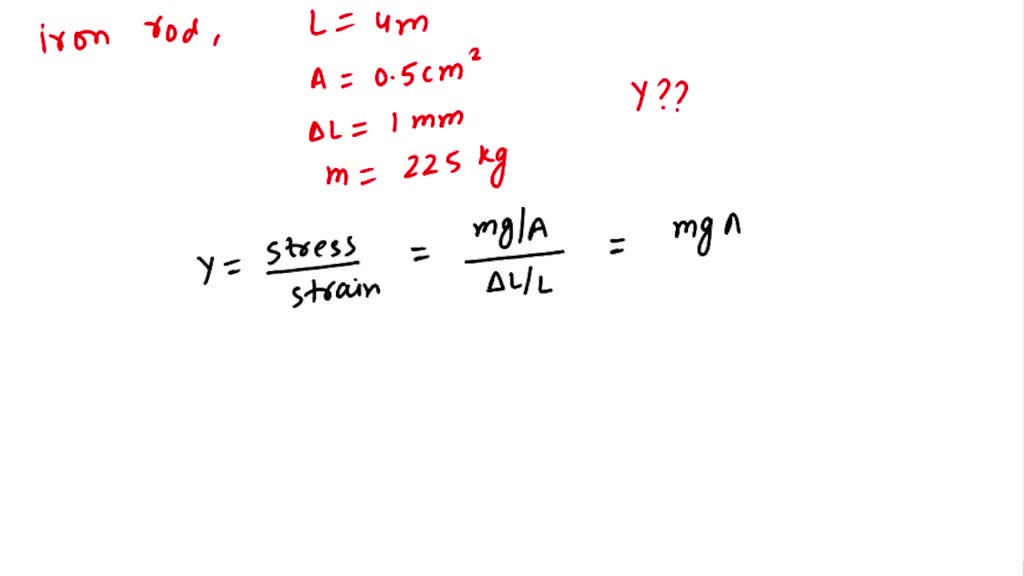 iron rod, L = 4m
A = 0.5cm²
Y??
ΔL = 1 mm
m = 225 kg
Y = stress/strain = mg/A / ΔL/L = mg